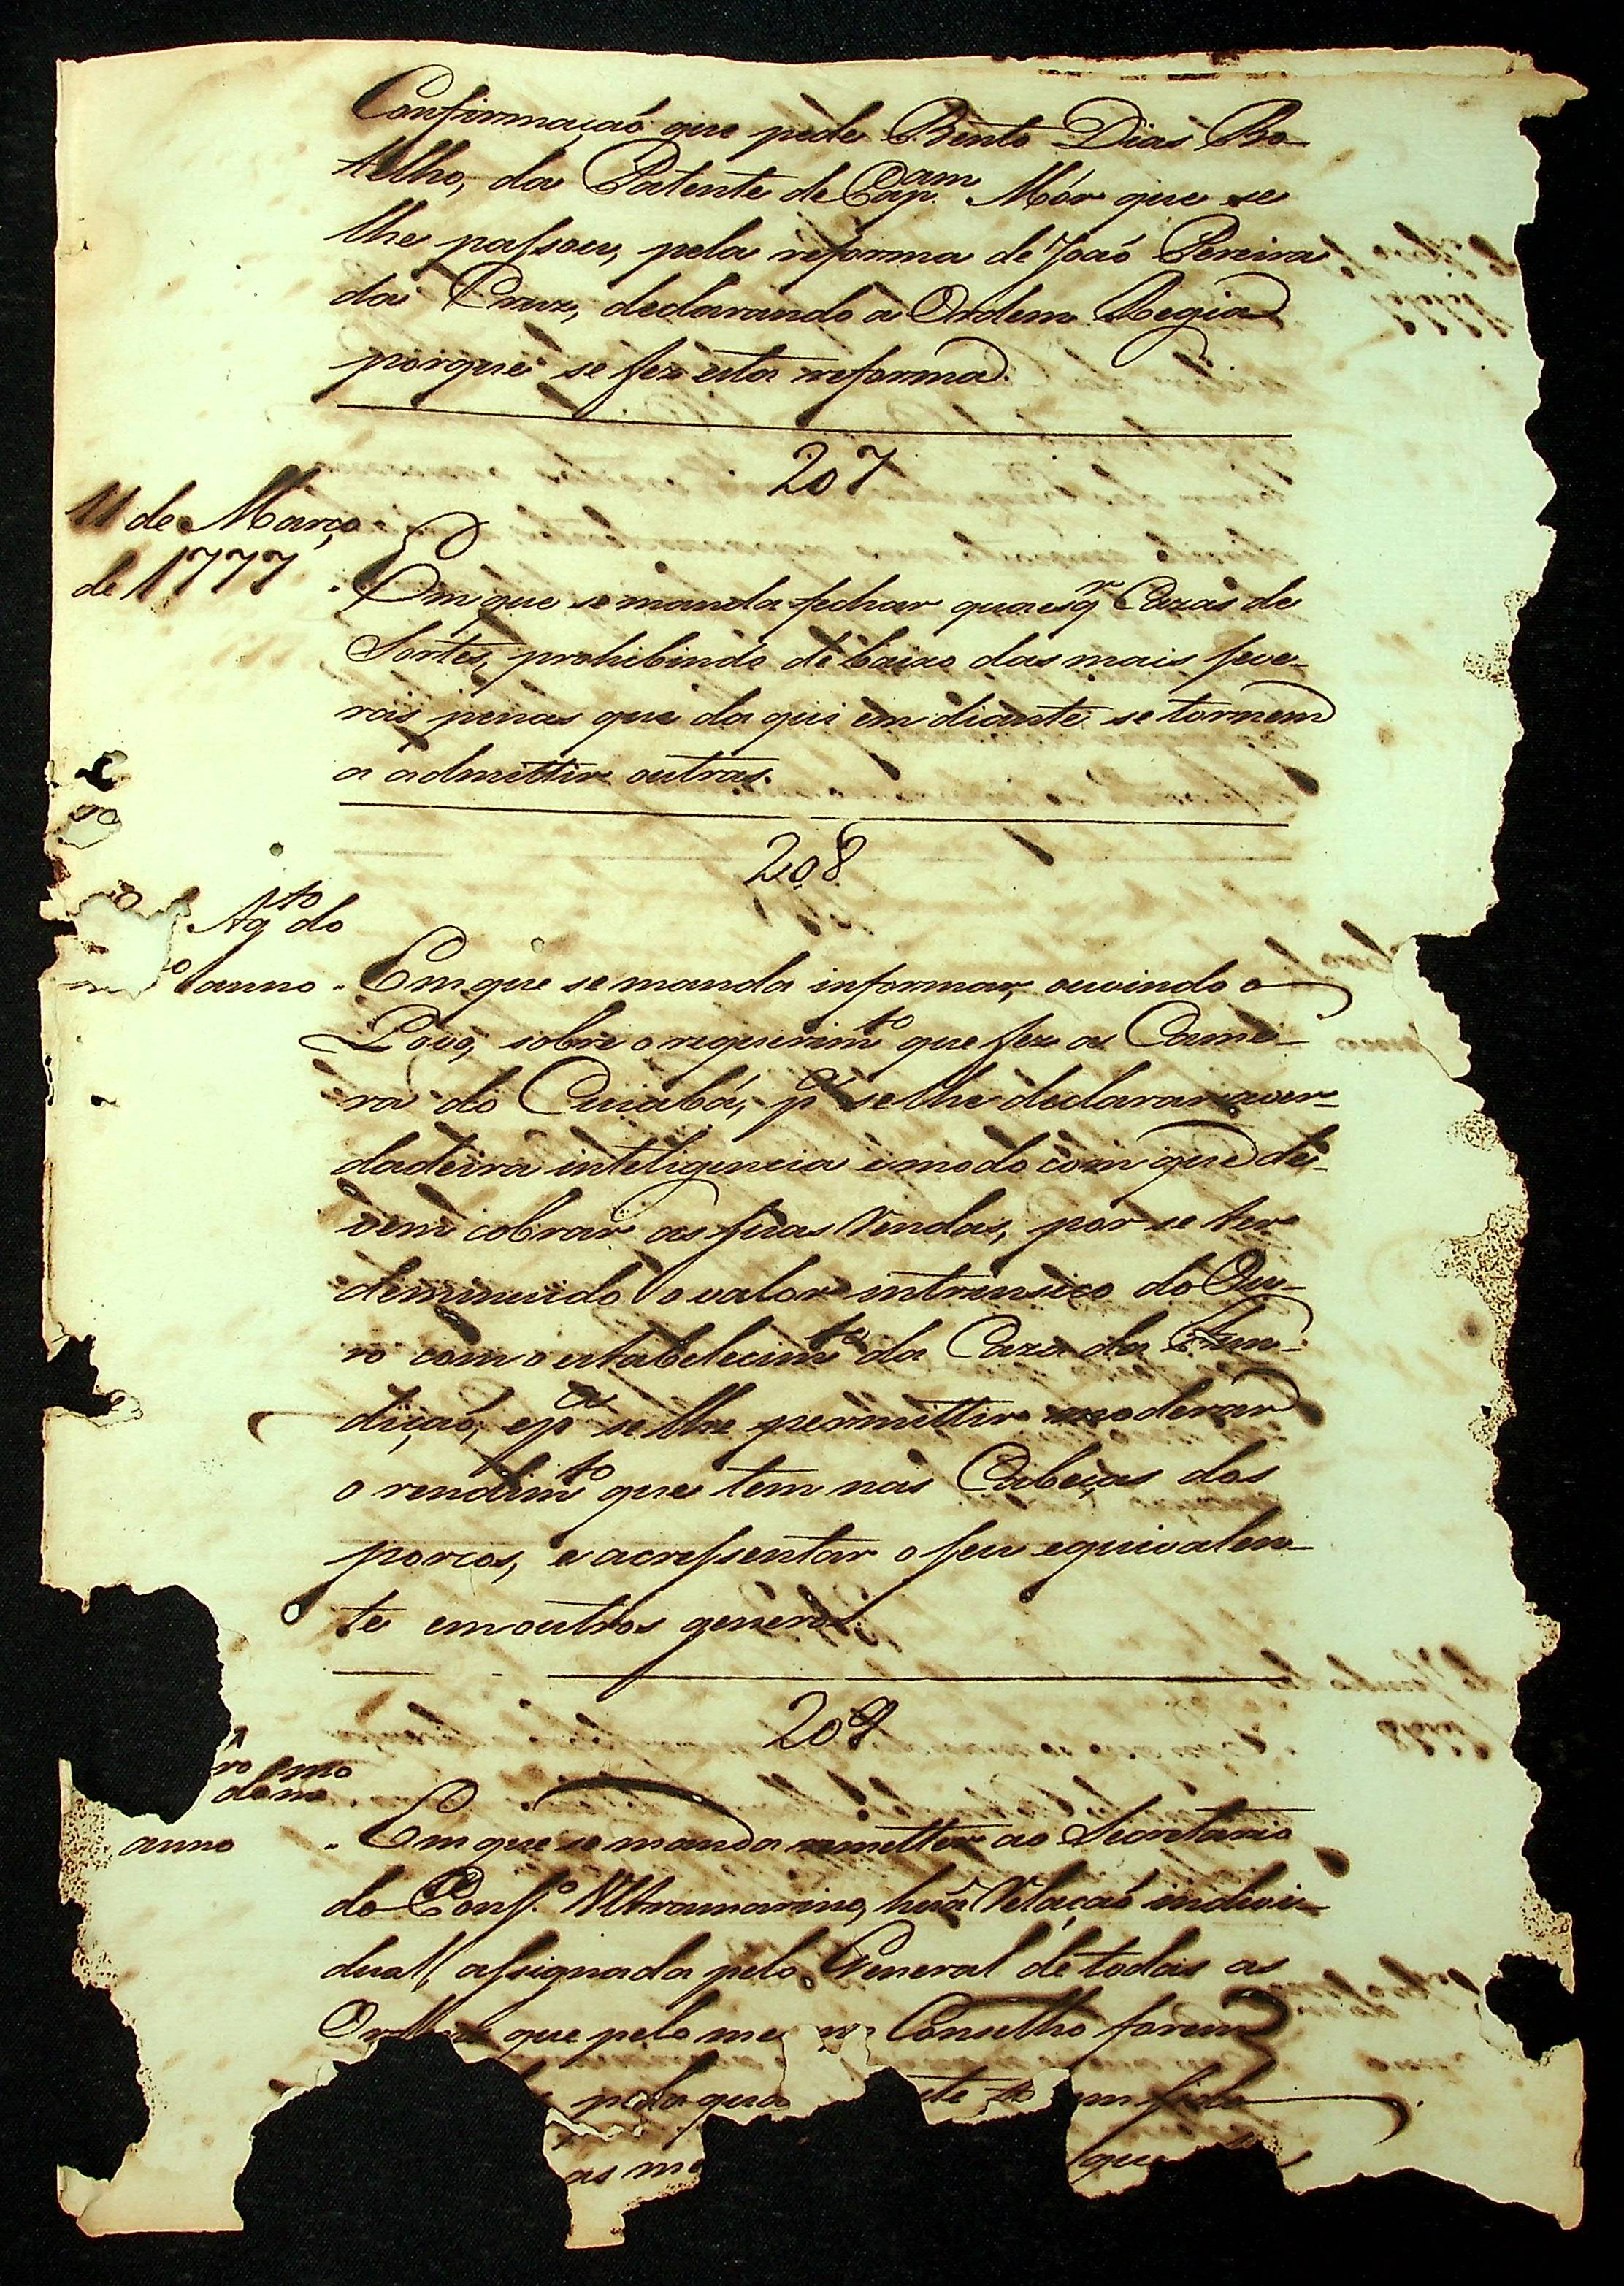 Confirmaçaõ que pede Bento Dias Bo-
telho, da Patente de Cap.am Mór que se
lhe passou, pela reforma de Joaõ Pereira
da Cruz, declarando a Ordem Regia
porque se fez esta reforma.
207
11 de Março
de 1777
Em que se manda fechar quaesqr Cazas de
Sortes, prohibindo de baixo das mais seve-
ras penas que da qui em diante se tornem
a admittir outras.
208
Agto do
anno. Em que se manda informar, ouvindo o
Povo, sobre o requerimto que fez a Came-
ra do Cuiabá, pa se lhe declarar a ver-
dadeira inteligencia e modo com que de-
vem cobrar as suas Rendas, por se ter
deminuido o valor intrinsico do Ou-
ro com o estabelecimto da Caza da Fun-
diçaõ, e pa se lhe permittir moderar
o rendimto que tem nas Cabeças dos
porcos, e acressentar o seu equivalen-
te em outros generos
209
ro
do mmo
anno
Em que se manda remetter ao Secretario
do Cons.o Ultramarino, huã Relaçaõ indivi-
dual, assignada pelo General de todas as
que pelo me Conselho forem
pela qua
as m que